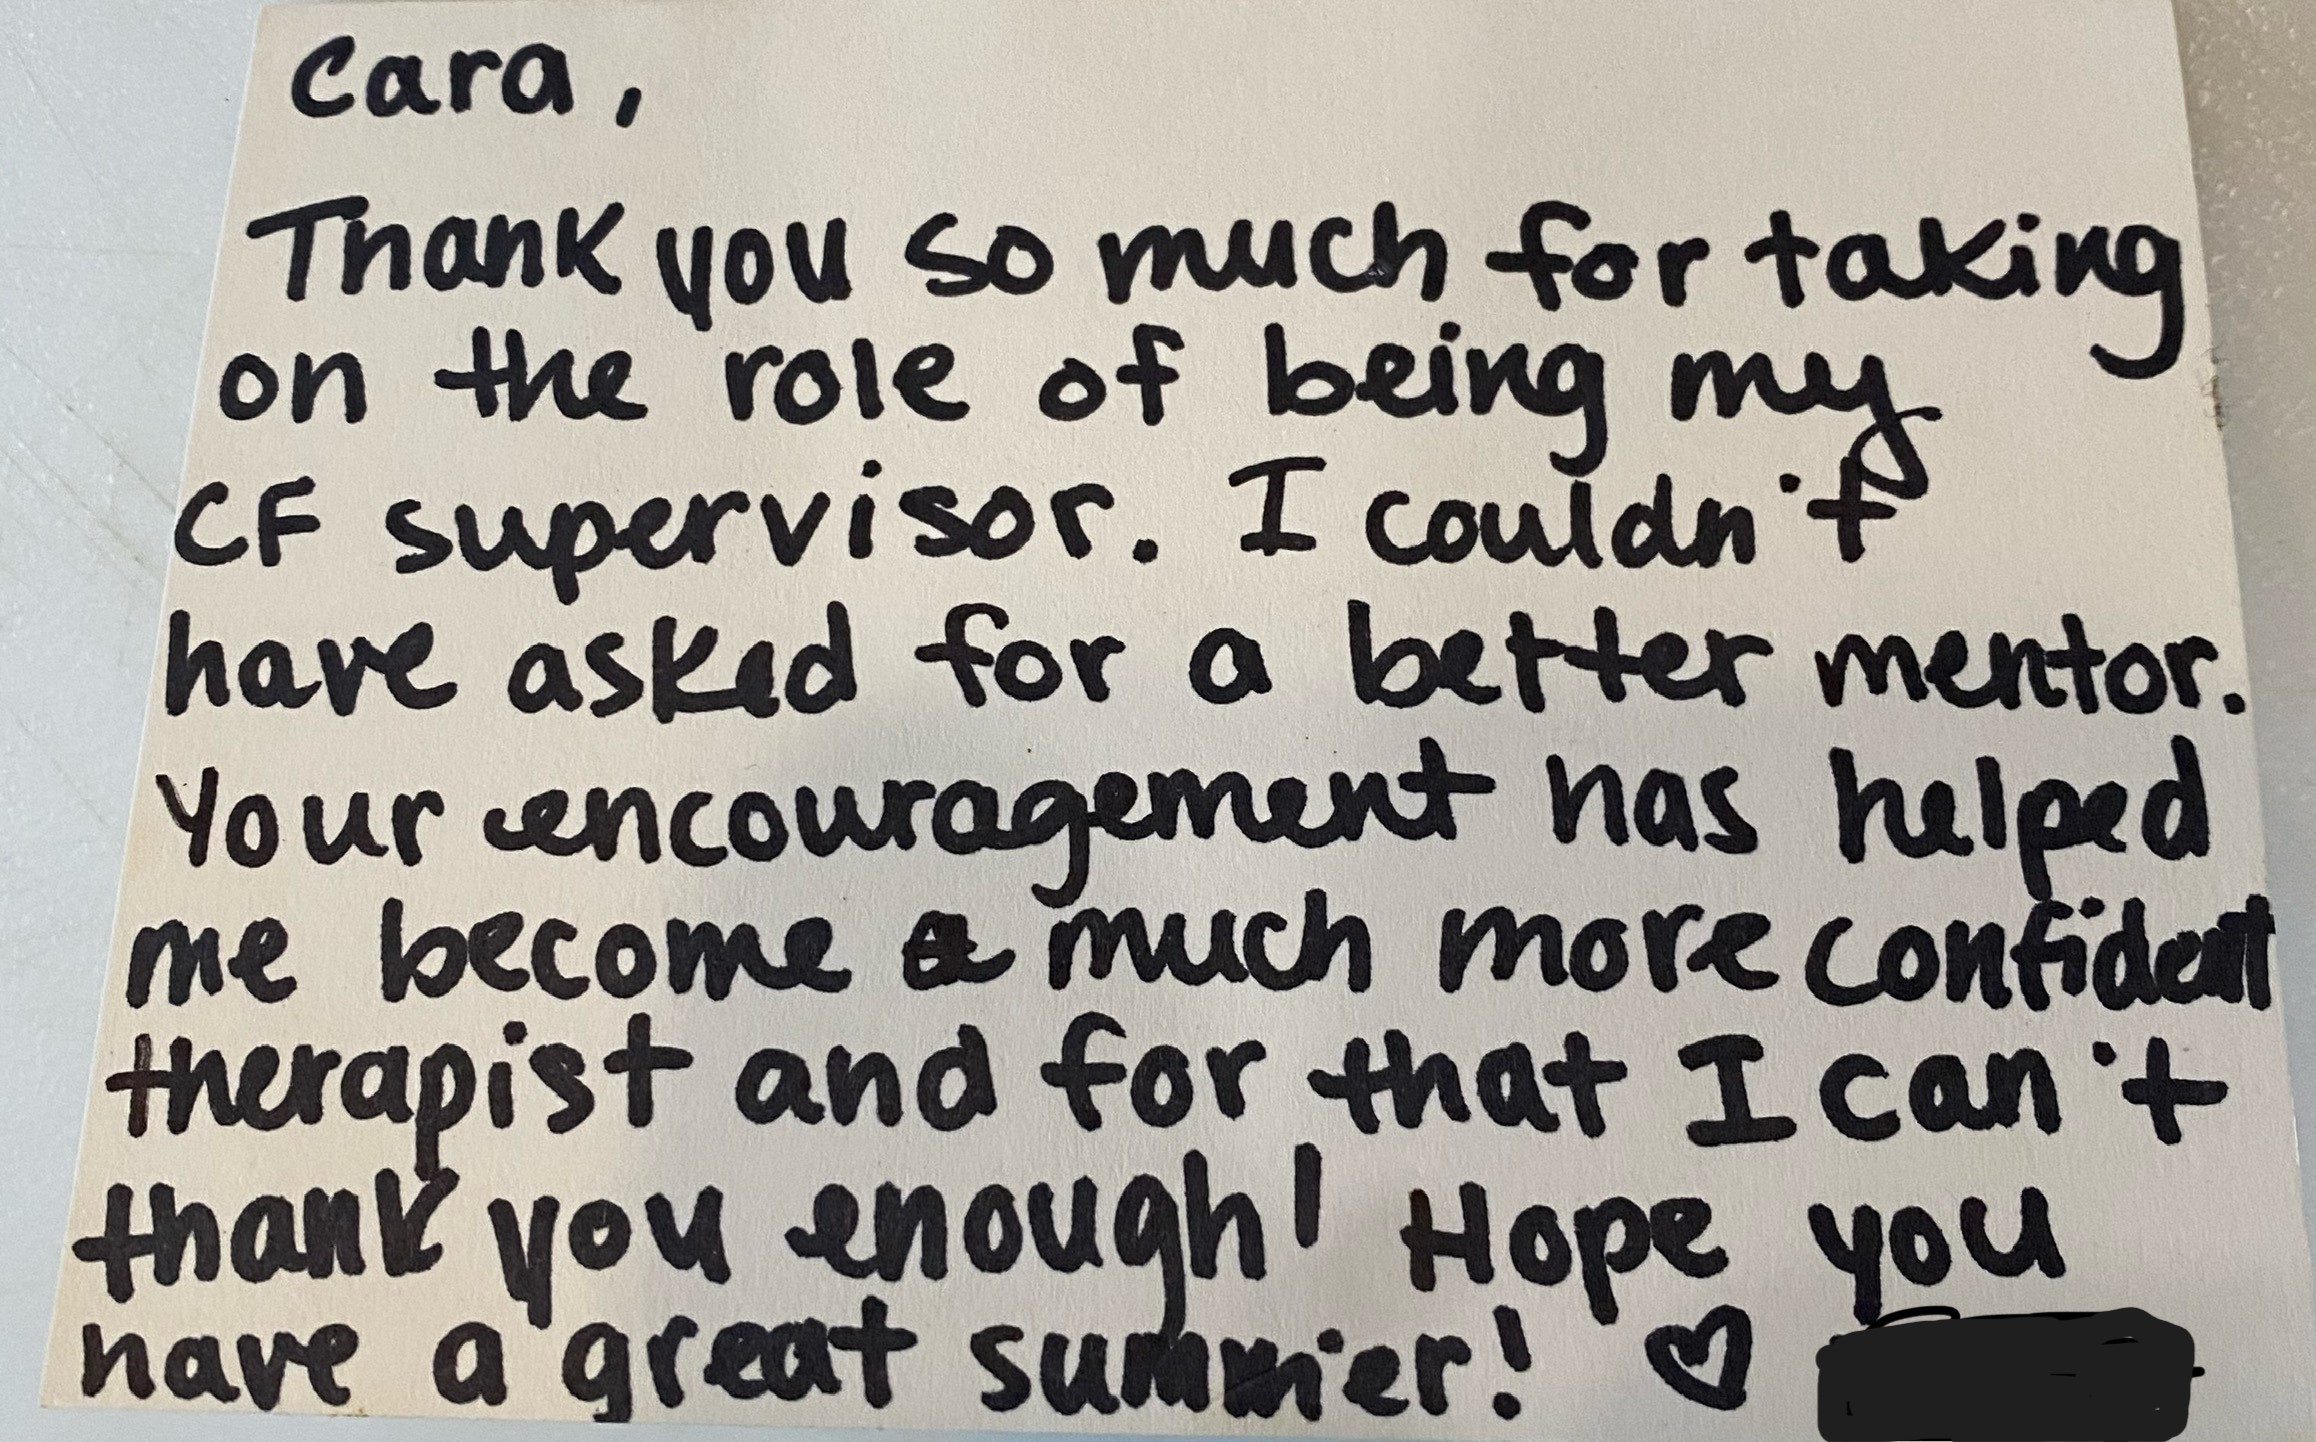 Cara,
Thank you so much for taking
on the role of being my
CF supervisor. I couldn't
have asked for a better mentor.
Your encouragement has helped
me become a much more confident
therapist and for that I can't
thank you enough! Hope you
have a great summer! ♡